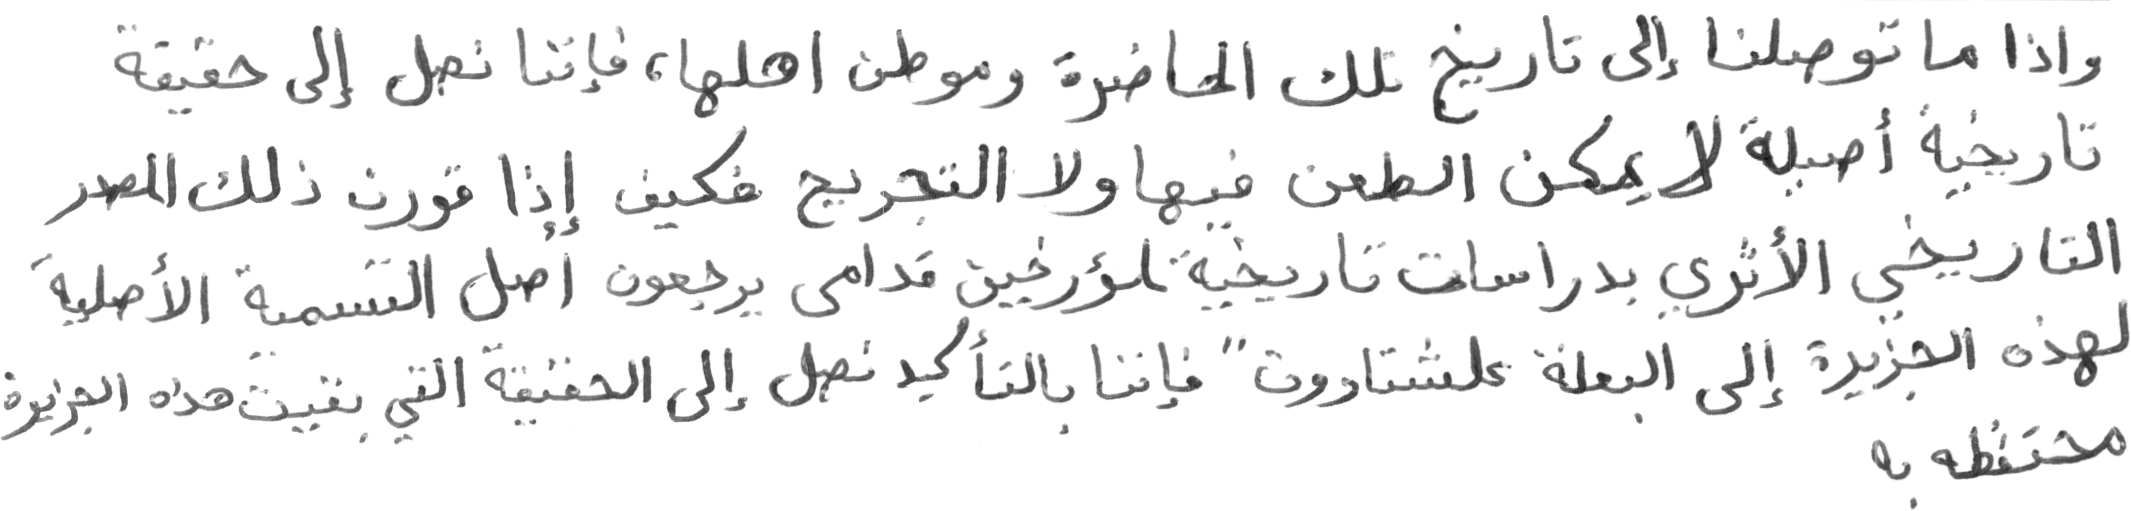 واذا ما توصلنا إلى تاريخ تلك الحاضرة وموطن اهلها، فإننا نصل إلى حقيقة
تاريخية أصيلة لا يمكن الطعن فيها ولا التجريح فكيف إذا قورن ذلك المصدر
التاريخي الأثري بدراسات تاريخية لمؤرخين قدامى يرجعون أصل التسمية الأصلية
لهذه الجزيرة إلى البعلة عشتاروت" فإننا بالتأكيد نصل إلى الحقيقة التي بقيت هذه الجزيرة
محتفظه به